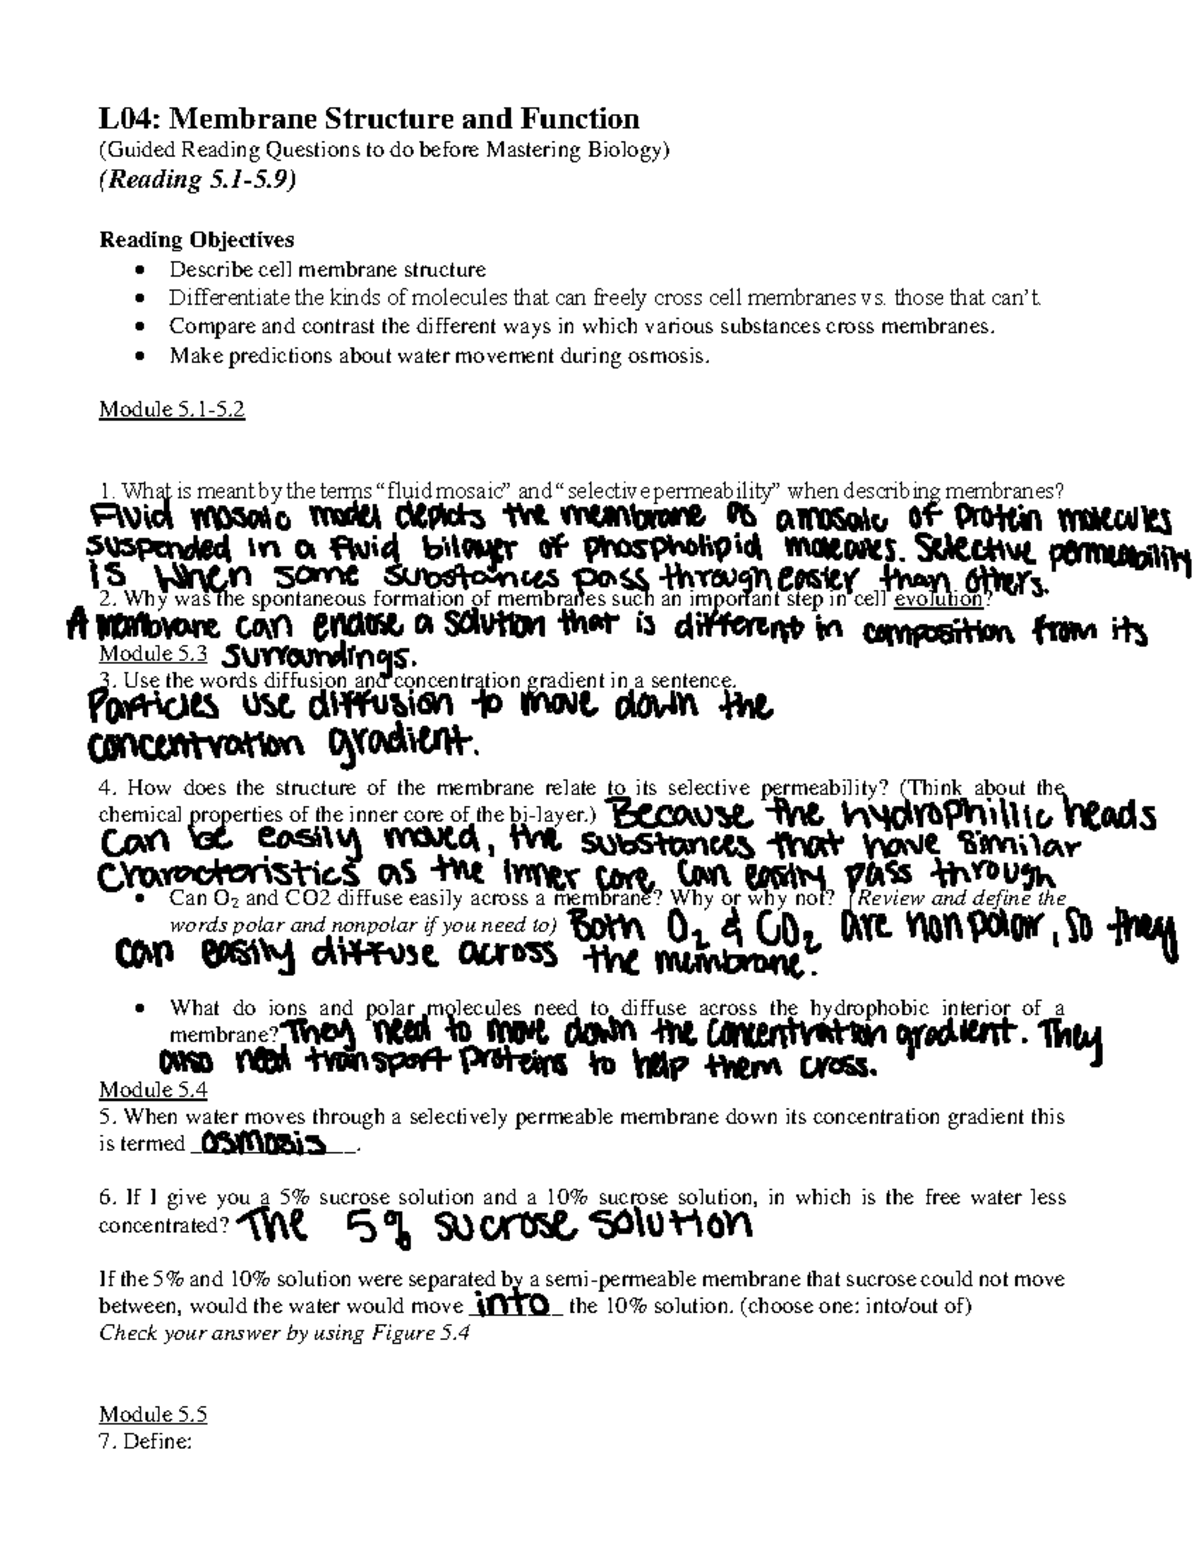 L04: Membrane Structure and Function
(Guided Reading Questions to do before Mastering Biology)
(Reading 5.1-5.9)
Reading Objectives
• Describe cell membrane structure
• Differentiate the kinds of molecules that can freely cross cell membranes vs. those that can't.
• Compare and contrast the different ways in which various substances cross membranes.
• Make predictions about water movement during osmosis.
Module 5.1-5.2
1. What is meant by the terms "fluid mosaic" and "selective permeability" when describing membranes?
Fluid mosaic model depicts the membrane as a mosaic of protein molecules
suspended in a fluid bilayer of phospholipid molecules. Selective permeability
is when some substances pass through easier than others.
2. Why was the spontaneous formation of membranes such an important step in cell evolution?
A membrane can enclose a solution that is different in composition from its
Module 5.3 surroundings.
3. Use the words diffusion and concentration gradient in a sentence.
Particles use diffusion to move down the
concentration gradient.
4. How does the structure of the membrane relate to its selective permeability? (Think about the
chemical properties of the inner core of the bi-layer.) Because the hydrophillic heads
can be easily moved, the substances that have similar
characteristics as the inner core can easily pass through
• Can O₂ and CO2 diffuse easily across a membrane? Why or why not? (Review and define the
words polar and nonpolar if you need to) Both O₂ & CO₂ are nonpolar, so they
can easily diffuse across the membrane.
• What do ions and polar molecules need to diffuse across the hydrophobic interior of a
membrane? They need to move down the concentration gradient. They
also need transport proteins to help them cross.
Module 5.4
5. When water moves through a selectively permeable membrane down its concentration gradient this
is termed osmosis.
6. If I give you a 5% sucrose solution and a 10% sucrose solution, in which is the free water less
concentrated? The 5% sucrose solution
If the 5% and 10% solution were separated by a semi-permeable membrane that sucrose could not move
between, would the water would move into the 10% solution. (choose one: into/out of)
Check your answer by using Figure 5.4
Module 5.5
7. Define: